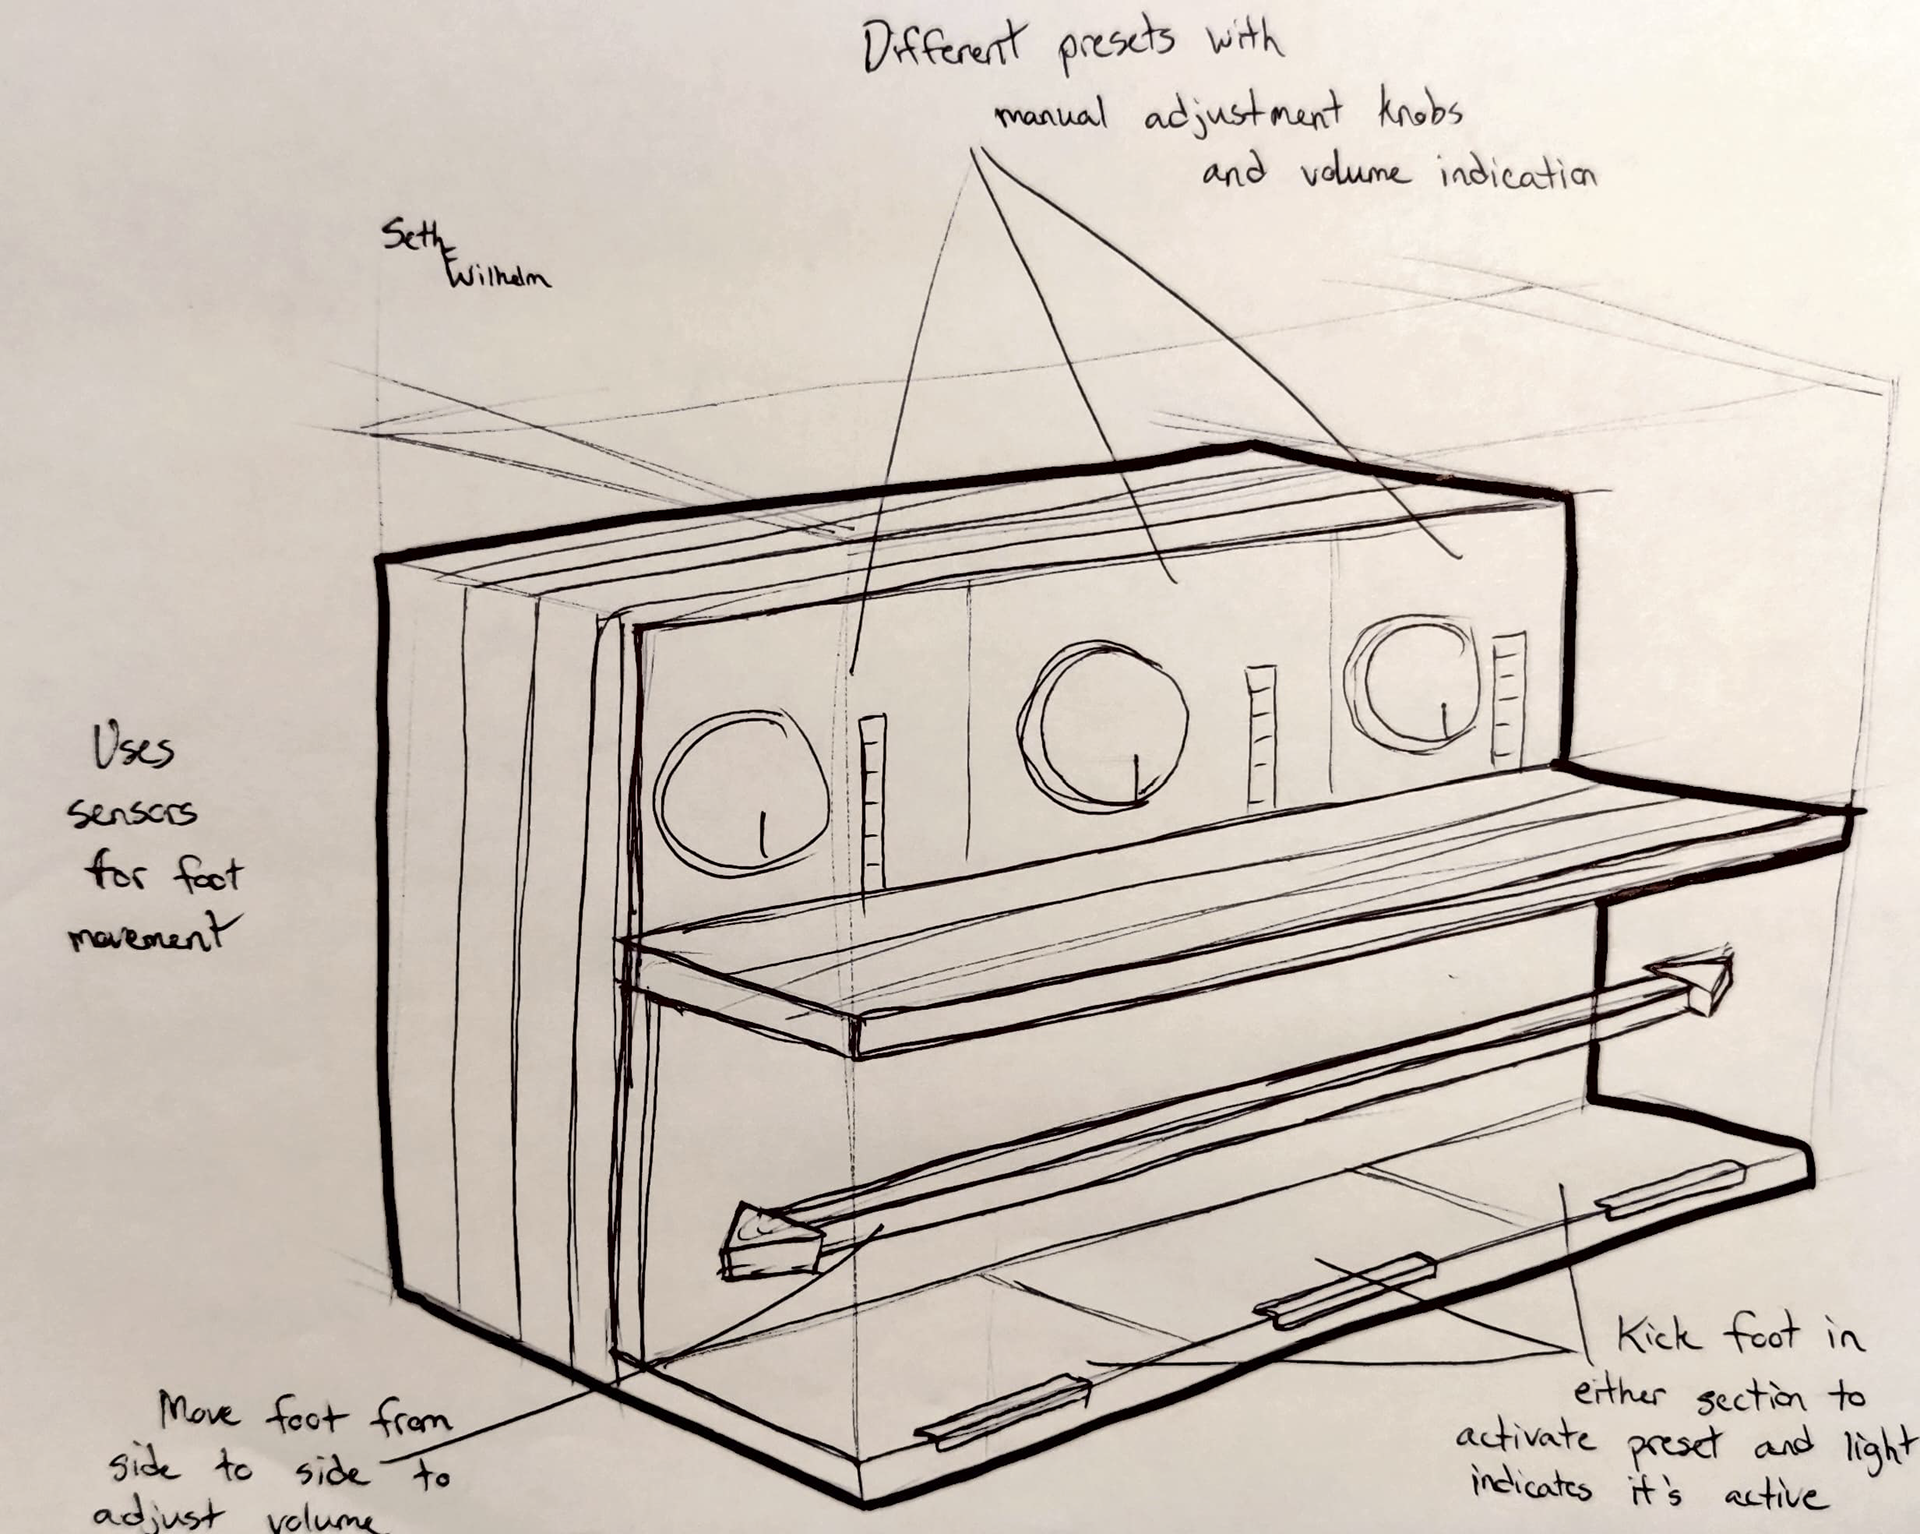 Different presets with
manual adjustment knobs
and volume indication
Seth
Wilhelm
Uses
sensors
for foot
movement
Move foot from
side to side to
adjust volume
Kick foot in
either section to
activate preset and light
indicates it's active